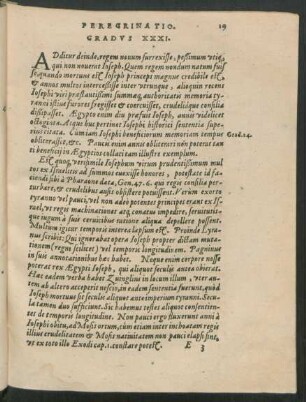 PEREGRINATIO. 19
GRADVS XXXI.
ADditur deinde, regem nouum surrexisse, pessimum vtiq́;
qui non nouerat Ioseph. Quem regem nondum natum fuisse
quando mortuus est Ioseph princeps magnus credibile est,
& annos multos intercessisse inter vtrunque, alioquin recens
Iosephi viri præstantissimi summaq́; authoritatis memoria tyranni
istius furores fregisset & concussisset, crudeliaq́; consilia
dissipasset. Aegypto enim diu præfuit Ioseph, annis videlicet
octoginta. Atque huc pertinet Iosephi historici sententia supra
citata. Cum iam Iosephi beneficiorum memoriam tempus Grad. 24.
obliterasset, &c. Pauci enim anni obliterni non poterat tanti
beneficij in Aegyptios collati tam illustre exemplum.
Est quoq́; verisimile Iosephum virum prudentissimum multos
ex Israelitis ad summos euexisse honores, potestate id faciendi
sibi à Pharaone data, Gen. 47. 6. qui regis consilia perturbare,
& crudelibus ausis obsistere potuissent. Verum extorre
tyranno vel pauci, vel non adeo potentes principes erant ex Israel,
vt regis machinationes arq́; conatus impedire, seruitutisque
iugum duriss. à suis ceruicibus ratione aliqua depellere possent.
Multum igitur temporis interea lapsum est. Proinde Lyranus
scribit, Qui ignorabat opera Ioseph propter dictam mutationem
(regni scilicet) vel temporis longitudinem. Pagninus
in suis annotationibus hæc habet. Neque enim corpore nosse
poterat rex Aegypti Ioseph, qui aliquot seculis antea obierat.
Hæc eadem verba habet Zuinglius in locum illum, veteratem
ab altero acceperit nescio, in eadem sententia, quod
Ioseph mortuus sit seculis aliquot ante imperium tyranni. Secula
tamen duo sufficiunt. Sic habemus testes aliquot consencientes
de temporis longitudine. Non pauci ergo fluxerunt anni à
Iosephi obitu, ad Mosis ortum, cum etiam inter inchoatam regis
illius crudelitatem & Mosis natiuitatem non pauci elapsi sint,
vt ex toto illo Exodi cap. 1. constare potest.
E 3